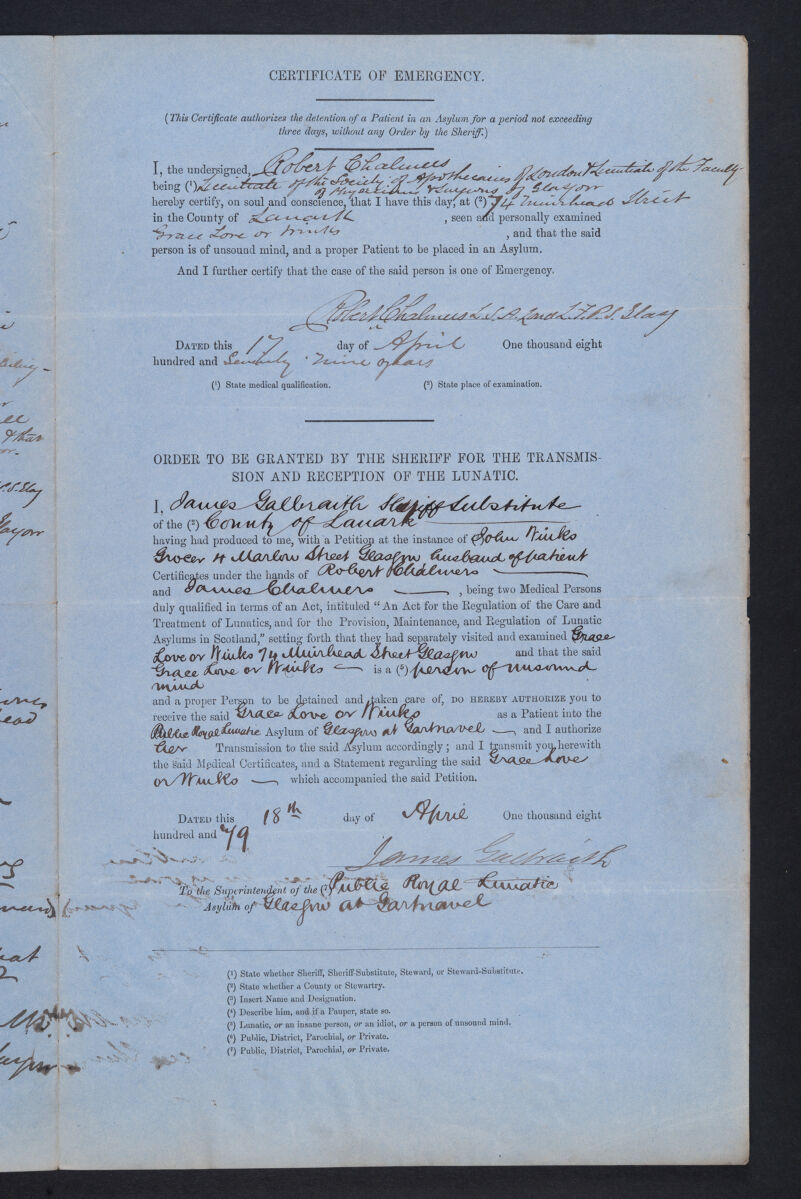 CERTIFICATE OF EMERGENCY.
(This Certificate authorizes the detention of a Patient in an Asylum for a period not exceeding
three days, without any Order by the Sheriff.)
I, the undersigned, Robert Chalmers
being (¹) Licentiate of the Society of Apothecaries of London & Licentiate of the Faculty
of Physicians & Surgeons of Glasgow
hereby certify, on soul and conscience, that I have this day, at (²) 74 Muirhead Street
in the County of Lanark, seen and personally examined
Grace Love or Winks, and that the said
person is of unsound mind, and a proper Patient to be placed in an Asylum.
And I further certify that the case of the said person is one of Emergency.
Robert Chalmers L.S.A. Lond L.F.P.S. Glasg
DATED this 17 day of April One thousand eight
hundred and Seventy nine years
(¹) State medical qualification. (²) State place of examination.
ORDER TO BE GRANTED BY THE SHERIFF FOR THE TRANSMIS-
SION AND RECEPTION OF THE LUNATIC.
I, James Galbraith Sheriff Substitute
of the (²) County of Lanark
having had produced to me, with a Petition at the instance of John Winks
Grocer 4 Marlow Street Glasgow husband of patient
Certificates under the hands of Robert Chalmers
and James Chalmers, being two Medical Persons
duly qualified in terms of an Act, intituled "An Act for the Regulation of the Care and
Treatment of Lunatics, and for the Provision, Maintenance, and Regulation of Lunatic
Asylums in Scotland," setting forth that they had separately visited and examined Grace
Love or Winks 74 Muirhead Street Glasgow and that the said
Grace Love or Winks is a (⁵) person of unsound
mind
and a proper Person to be detained and taken care of, DO HEREBY AUTHORIZE you to
receive the said Grace Love or Winks as a Patient into the
Public Royal Lunatic Asylum of Glasgow at Gartnavel and I authorize
her Transmission to the said Asylum accordingly; and I transmit you herewith
the said Medical Certificates, and a Statement regarding the said Grace Love
or Winks which accompanied the said Petition.
DATED this 18th day of April One thousand eight
hundred and 79
James Galbraith
To the Superintendent of the Public Royal Lunatic
Asylum of Glasgow at Gartnavel
(¹) State whether Sheriff, Sheriff-Substitute, Steward, or Steward-Substitute.
(²) State whether a County or Stewartry.
(³) Insert Name and Designation.
(⁴) Describe him, and if a Pauper, state so.
(⁵) Lunatic, or an insane person, or an idiot, or a person of unsound mind.
(⁶) Public, District, Parochial, or Private.
(⁷) Public, District, Parochial, or Private.